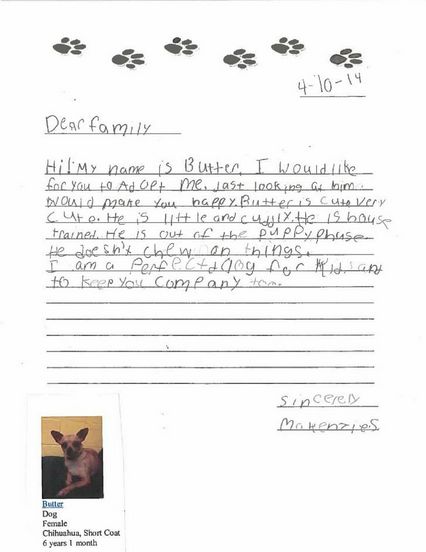 4-10-14
Dear family
Hi! My name is Butter. I would like
for you to Adopt me. Jast looking at him.
Would make you happy. Butter is cute very
cute. He is little and cuddly. He is house
trained. He is out of the puppy phase.
He doesn't chew on things.
I am a perfect dog for kids and
to keep you company too.
sincerely
Makenzie S
Butter
Dog
Female
Chihuahua, Short Coat
6 years 1 month